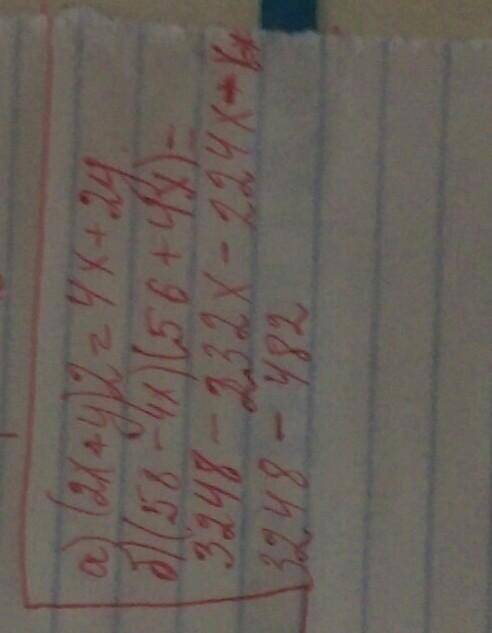 а) (2x+y)2 = 4x+2y
б) (58-4x)(56+4x)=
3248-232x-224x-
3248-482